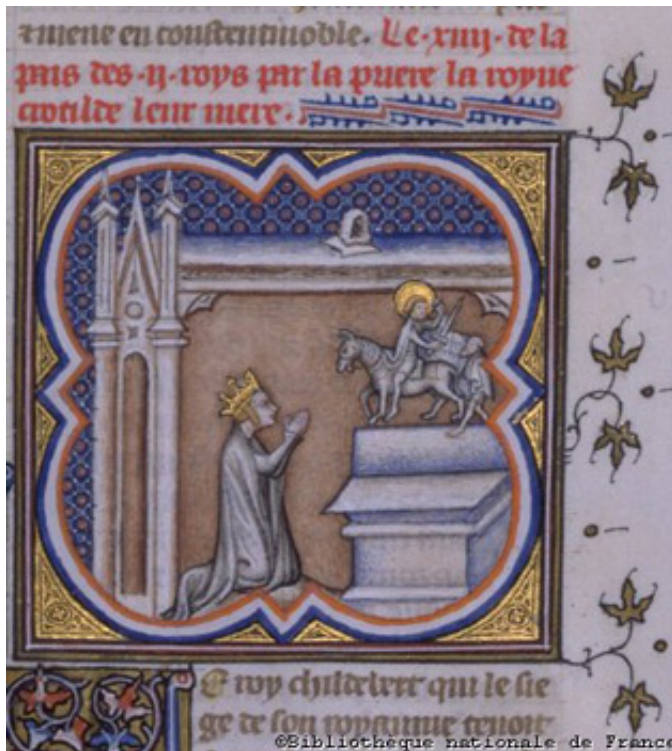 amene en constentinoble. Le .xiiij. de la
pais des .ij. roys par la priere la royne
crotilde leur mere.
E roy childebert qui le sie
ge de son royaume tenoit
©Bibliothèque nationale de France